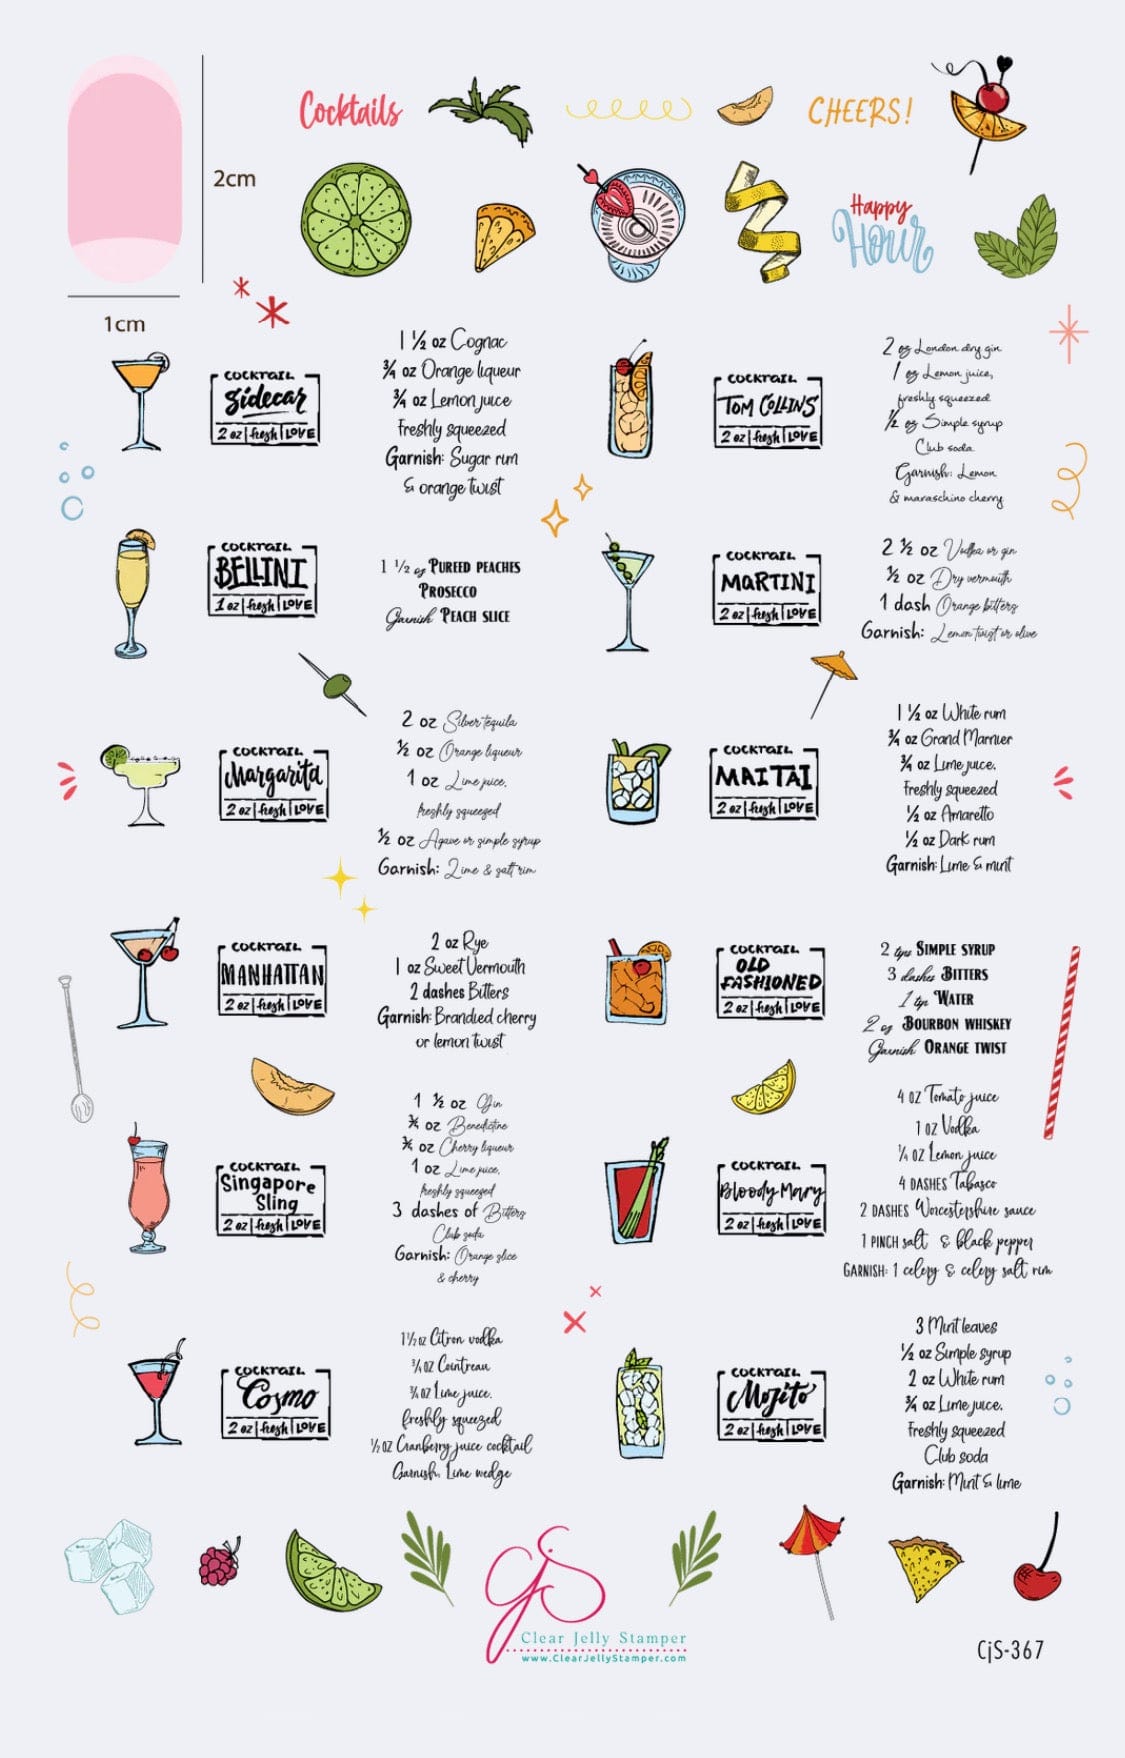 Cocktails
CHEERS!
2cm
Happy
Hour
1cm
COCKTAIL
Sidecar
2 oz | fresh | LOVE
1 ½ oz Cognac
¾ oz Orange liqueur
¾ oz Lemon juice
Freshly squeezed
Garnish: Sugar rim
& orange twist
COCKTAIL
TOM COLLINS
2 oz | fresh | LOVE
2 oz London dry gin
1 oz Lemon juice,
freshly squeezed
½ oz Simple syrup
Club soda
Garnish: Lemon
& maraschino cherry
COCKTAIL
BELLINI
1 oz | fresh | LOVE
1 ½ oz PUREED PEACHES
PROSECCO
Garnish PEACH SLICE
COCKTAIL
MARTINI
2 oz | fresh | LOVE
2 ½ oz Vodka or gin
½ oz Dry vermouth
1 dash Orange bitters
Garnish: Lemon twist or olive
COCKTAIL
Margarita
2 oz | fresh | LOVE
2 oz Silver tequila
½ oz Orange liqueur
1 oz Lime juice,
freshly squeezed
½ oz Agave or simple syrup
Garnish: Lime & salt rim
COCKTAIL
MAI TAI
2 oz | fresh | LOVE
1 ½ oz White rum
¾ oz Grand Marnier
¾ oz Lime juice,
freshly squeezed
½ oz Amaretto
½ oz Dark rum
Garnish: Lime & mint
COCKTAIL
MANHATTAN
2 oz | fresh | LOVE
2 oz Rye
1 oz Sweet Vermouth
2 dashes Bitters
Garnish: Brandied cherry
or lemon twist
COCKTAIL
OLD
FASHIONED
2 oz | fresh | LOVE
2 tsps SIMPLE SYRUP
3 dashes BITTERS
1 tsp WATER
2 oz BOURBON WHISKEY
Garnish ORANGE TWIST
COCKTAIL
Singapore
Sling
2 oz | fresh | LOVE
1 ½ oz Gin
¾ oz Benedictine
¾ oz Cherry liqueur
1 oz Lime juice,
freshly squeezed
3 dashes of Bitters
Club soda
Garnish: Orange slice
& cherry
COCKTAIL
Bloody Mary
2 oz | fresh | LOVE
4 OZ Tomato juice
1 OZ Vodka
¼ OZ Lemon juice
4 DASHES Tabasco
2 DASHES Worcestershire sauce
1 PINCH salt & black pepper
GARNISH: 1 celery & celery salt rim
COCKTAIL
Cosmo
2 oz | fresh | LOVE
1 ½ OZ Citron vodka
¾ OZ Cointreau
¾ OZ Lime juice,
freshly squeezed
½ OZ Cranberry juice cocktail
Garnish: Lime wedge
COCKTAIL
Mojito
2 oz | fresh | LOVE
3 Mint leaves
½ oz Simple syrup
2 oz White rum
¾ oz Lime juice,
Freshly squeezed
Club soda
Garnish: Mint & lime
CjS
Clear Jelly Stamper
www.ClearJellyStamper.com
CjS-367